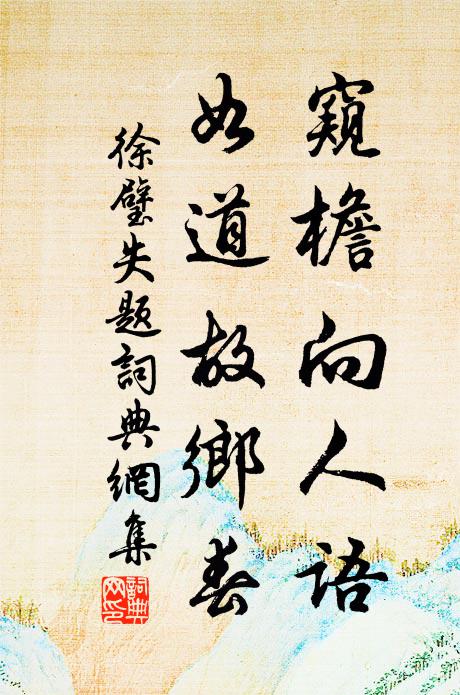 窺檐向人語
如道故鄉春
徐璧失題詞典網集
詞典